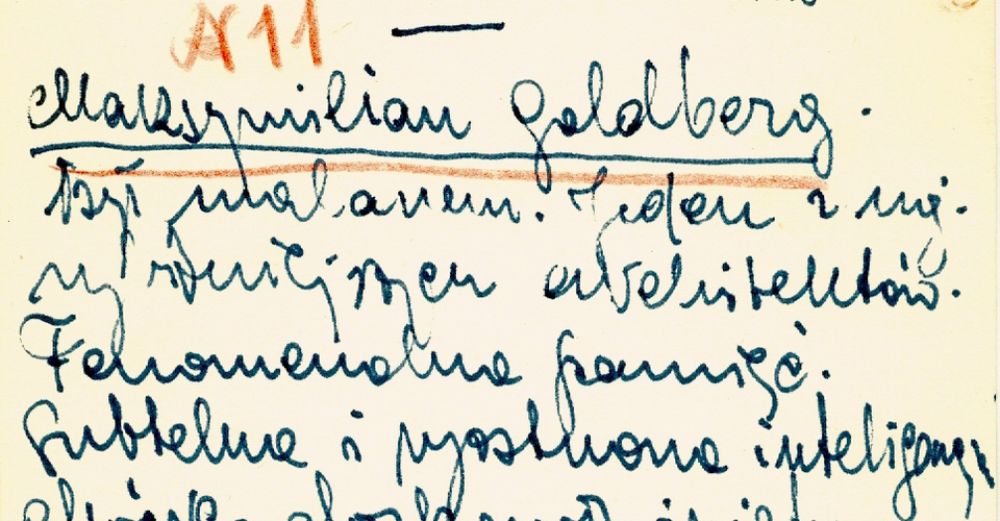 N 11
Maksymilian Goldberg.
Był malarzem. Jeden z naj.
wybitniejszych architektów.
Fenomenalna pamięć.
Subtelna i wyostrzona